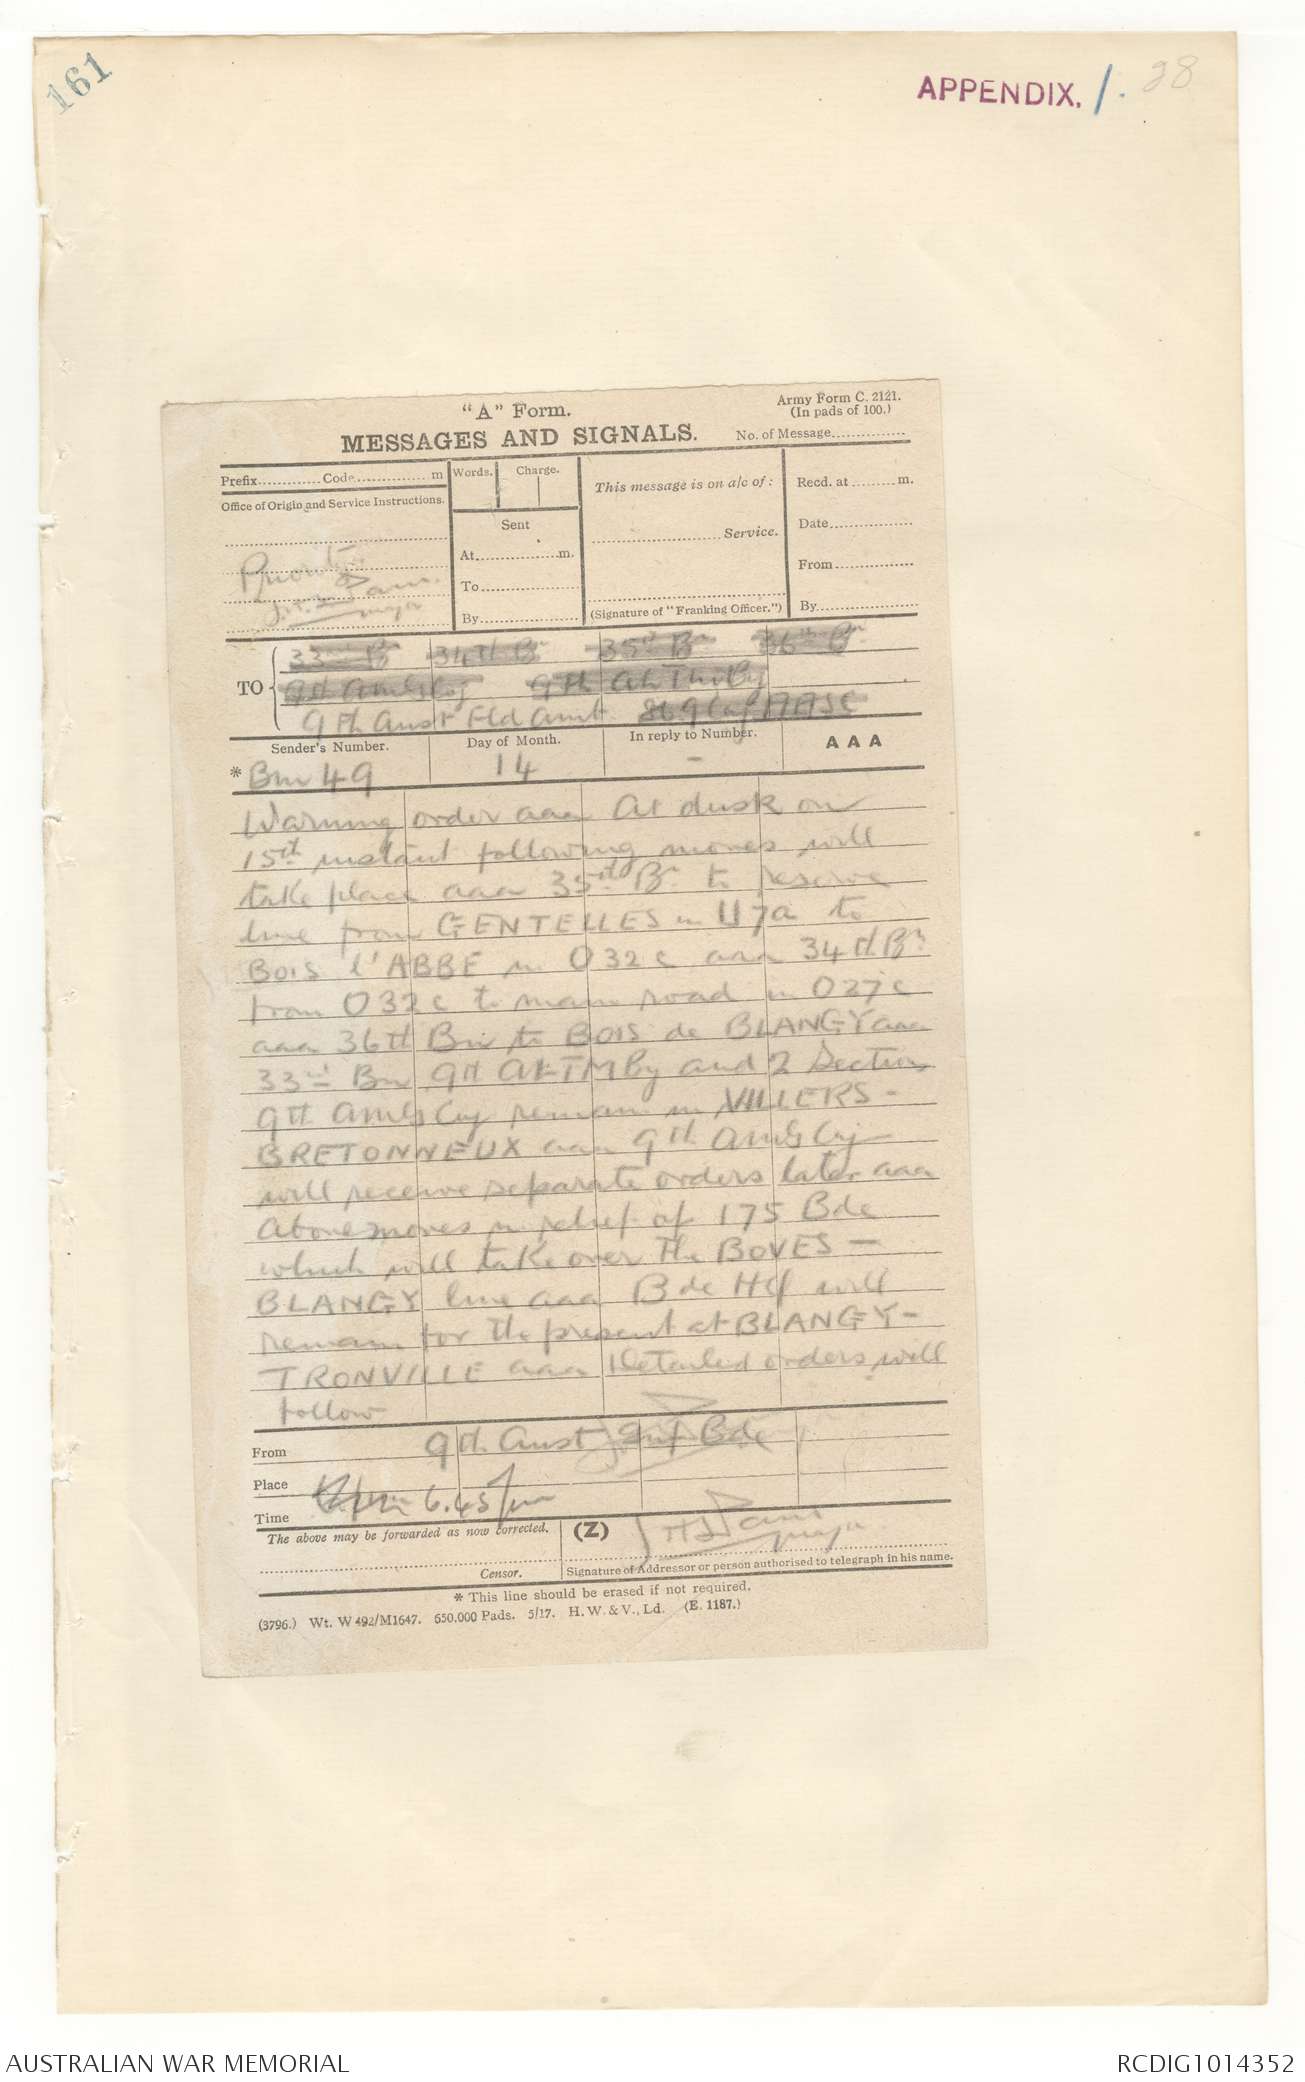 161
APPENDIX. 1. 28
"A" Form.
Army Form C. 2121.
(In pads of 100.)
MESSAGES AND SIGNALS.
No. of Message...............
Prefix............ Code............... m
Words. Charge.
This message is on a/c of:
Recd. at .........m.
Office of Origin and Service Instructions.
Sent
...........................Service.
Date..................
Priority
At..................m.
From.................
To..................
major
By..................
(Signature of "Franking Officer.")
By.....................
TO
33rd Bn 34th Bn 35th Bn 36th Bn
9th AMG Coy 9th ALTM By
9th Aust Fld Amb AASC
Sender's Number.
Day of Month.
In reply to Number.
AAA
* Bm 49
14
-
Warning order aaa At dusk on
15th instant following moves will
take place aaa 35th Bn to reserve
line from GENTELLES in U7a to
BOIS l'ABBE in O32c aaa 34th Bn
from O32c to main road in O27c
aaa 36th Bn to BOIS de BLANGY aaa
33rd Bn 9th ALTM By and 2 Section
9th AMG Coy remain in VILLERS-
BRETONNEUX aaa 9th AMG Coy
will receive separate orders later aaa
Above moves in relief of 175 Bde
which will take over the BOVES -
BLANGY line aaa Bde HQ will
remain for the present at BLANGY-
TRONVILLE aaa Detailed orders will
follow
From
9th Aust Inf Bde
Place
Time
6.45 pm
The above may be forwarded as now corrected.
(Z)
major
Censor.
Signature of Addressor or person authorised to telegraph in his name.
* This line should be erased if not required.
(3796.) Wt. W 492/M1647. 650,000 Pads. 5/17. H. W. & V., Ld. (E. 1187.)
AUSTRALIAN WAR MEMORIAL
RCDIG1014352